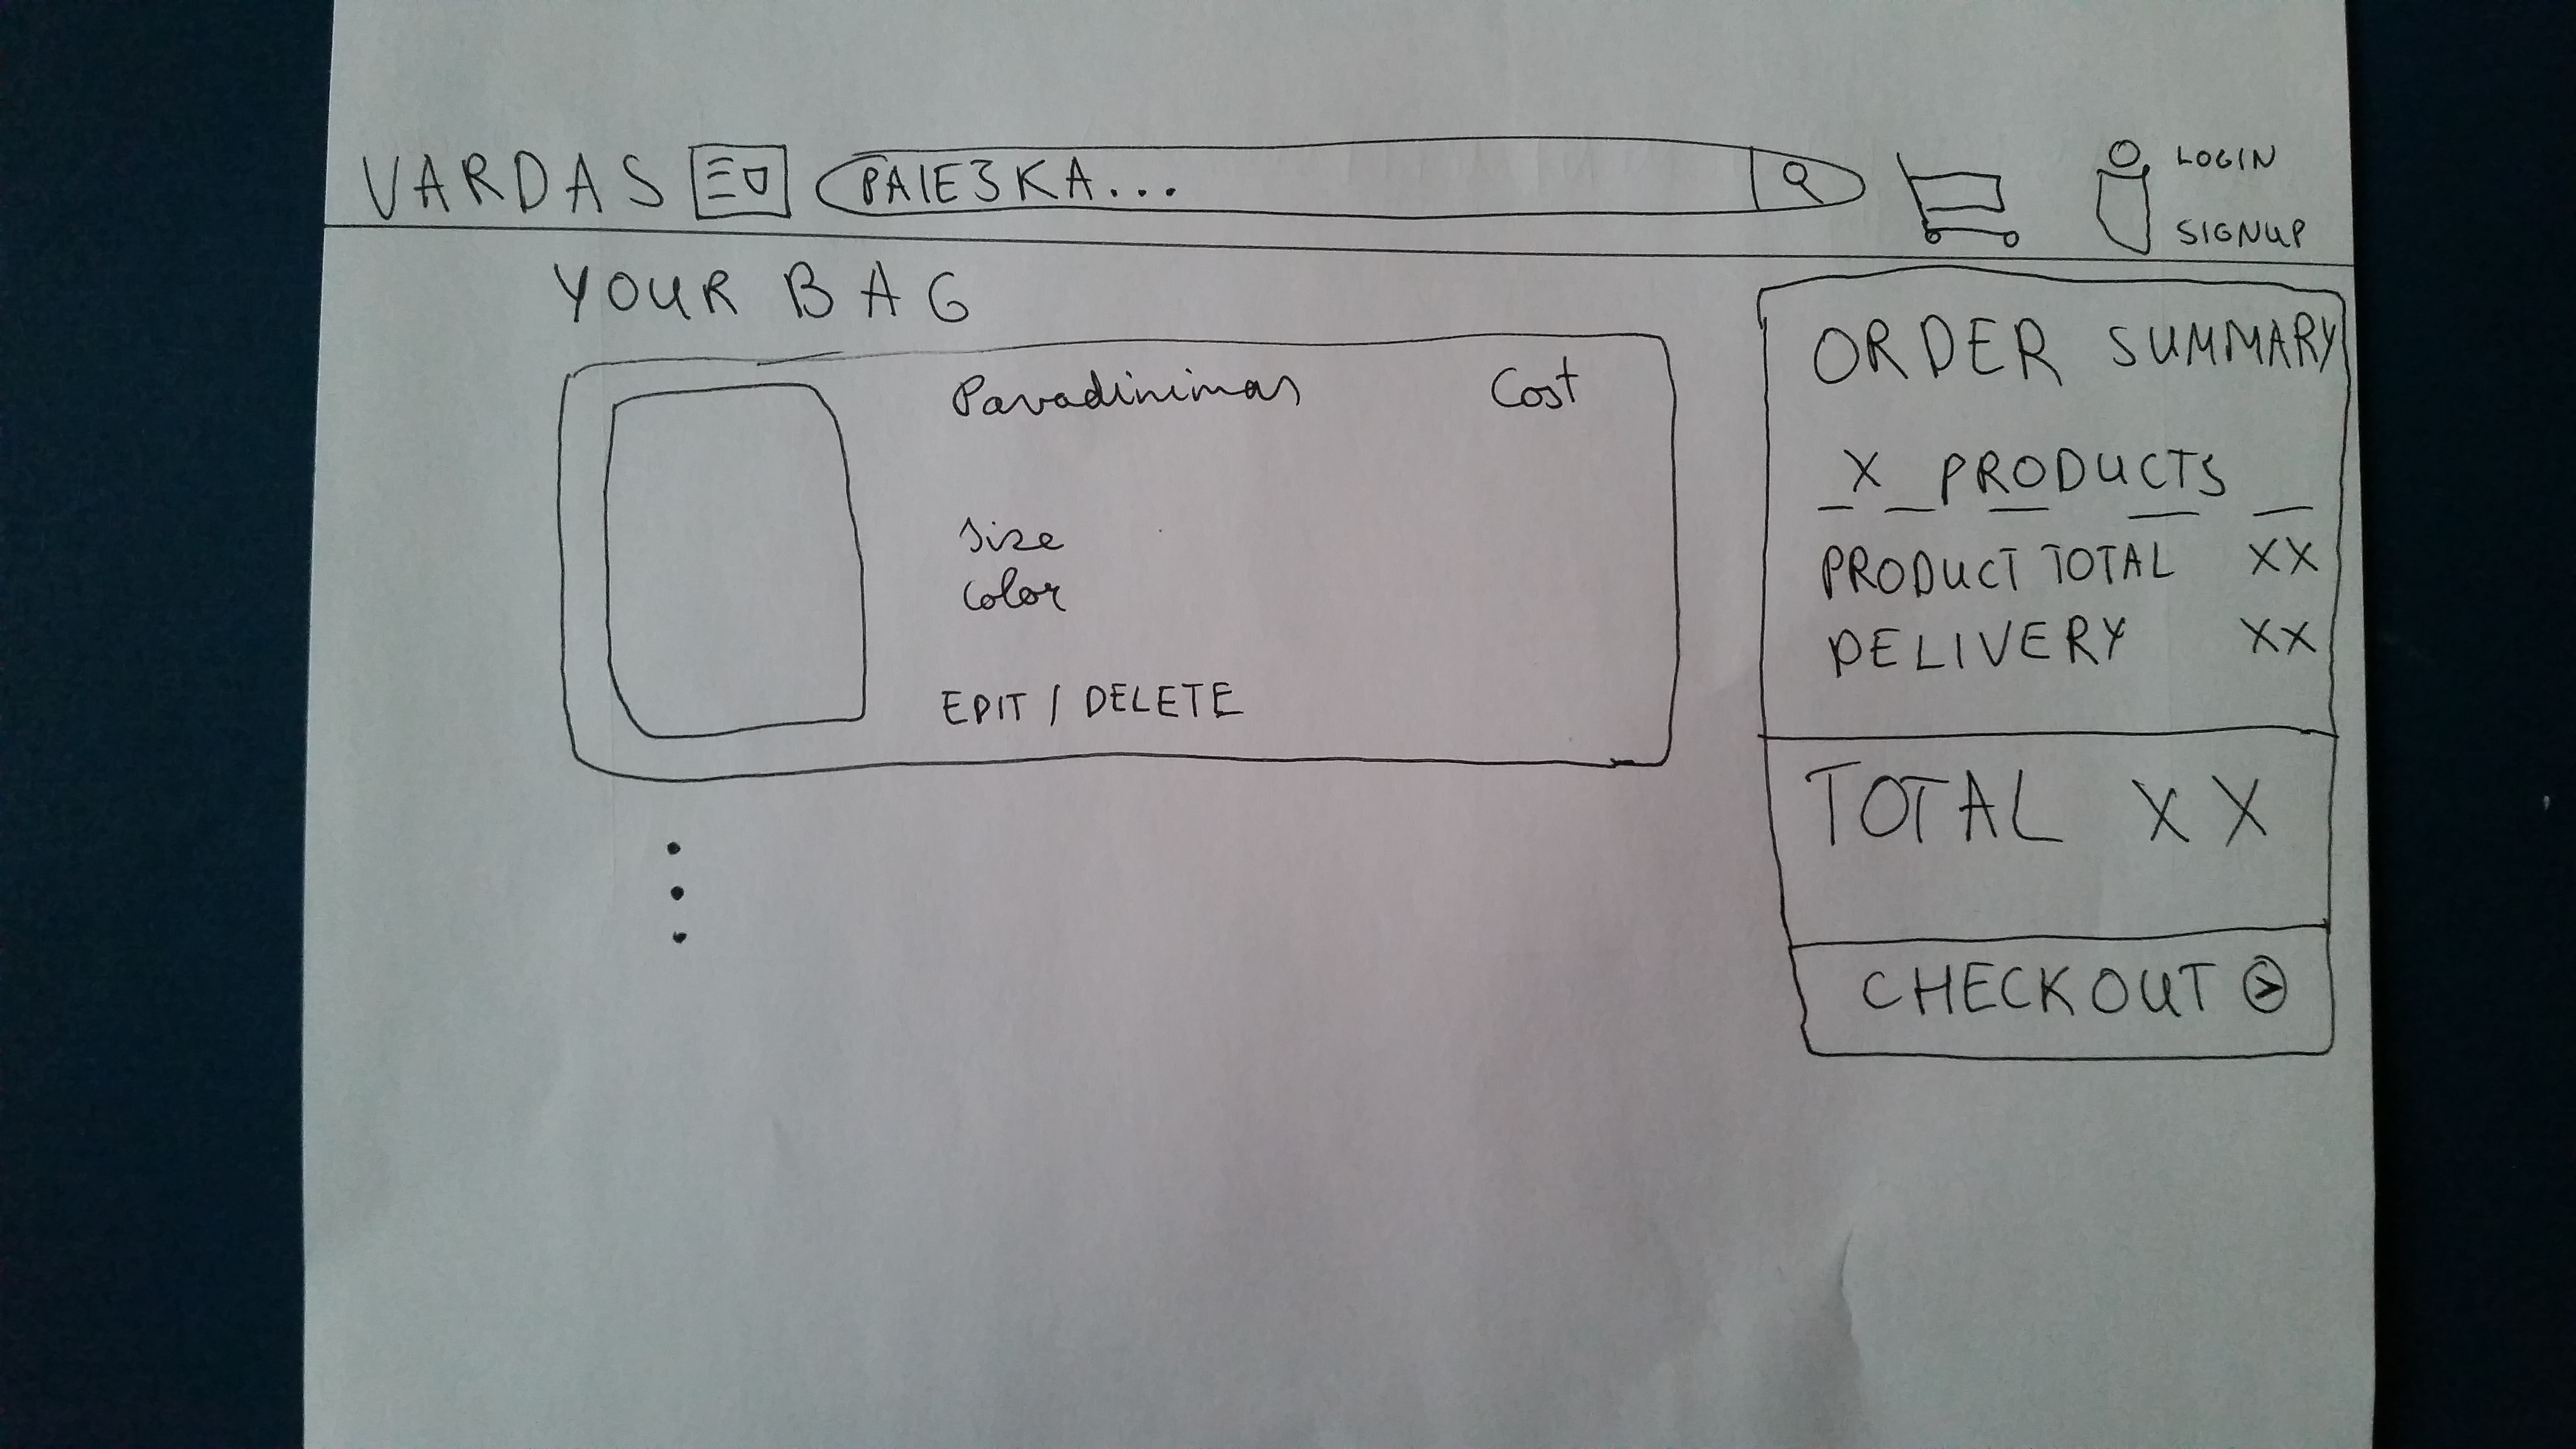 VARDAS
PAIE3KA...
LOGIN
SIGNUP
YOUR BAG
Pavadinimas Cost
size
color
EDIT / DELETE
ORDER SUMMARY
X PRODUCTS
PRODUCT TOTAL XX
DELIVERY XX
TOTAL XX
CHECKOUT >